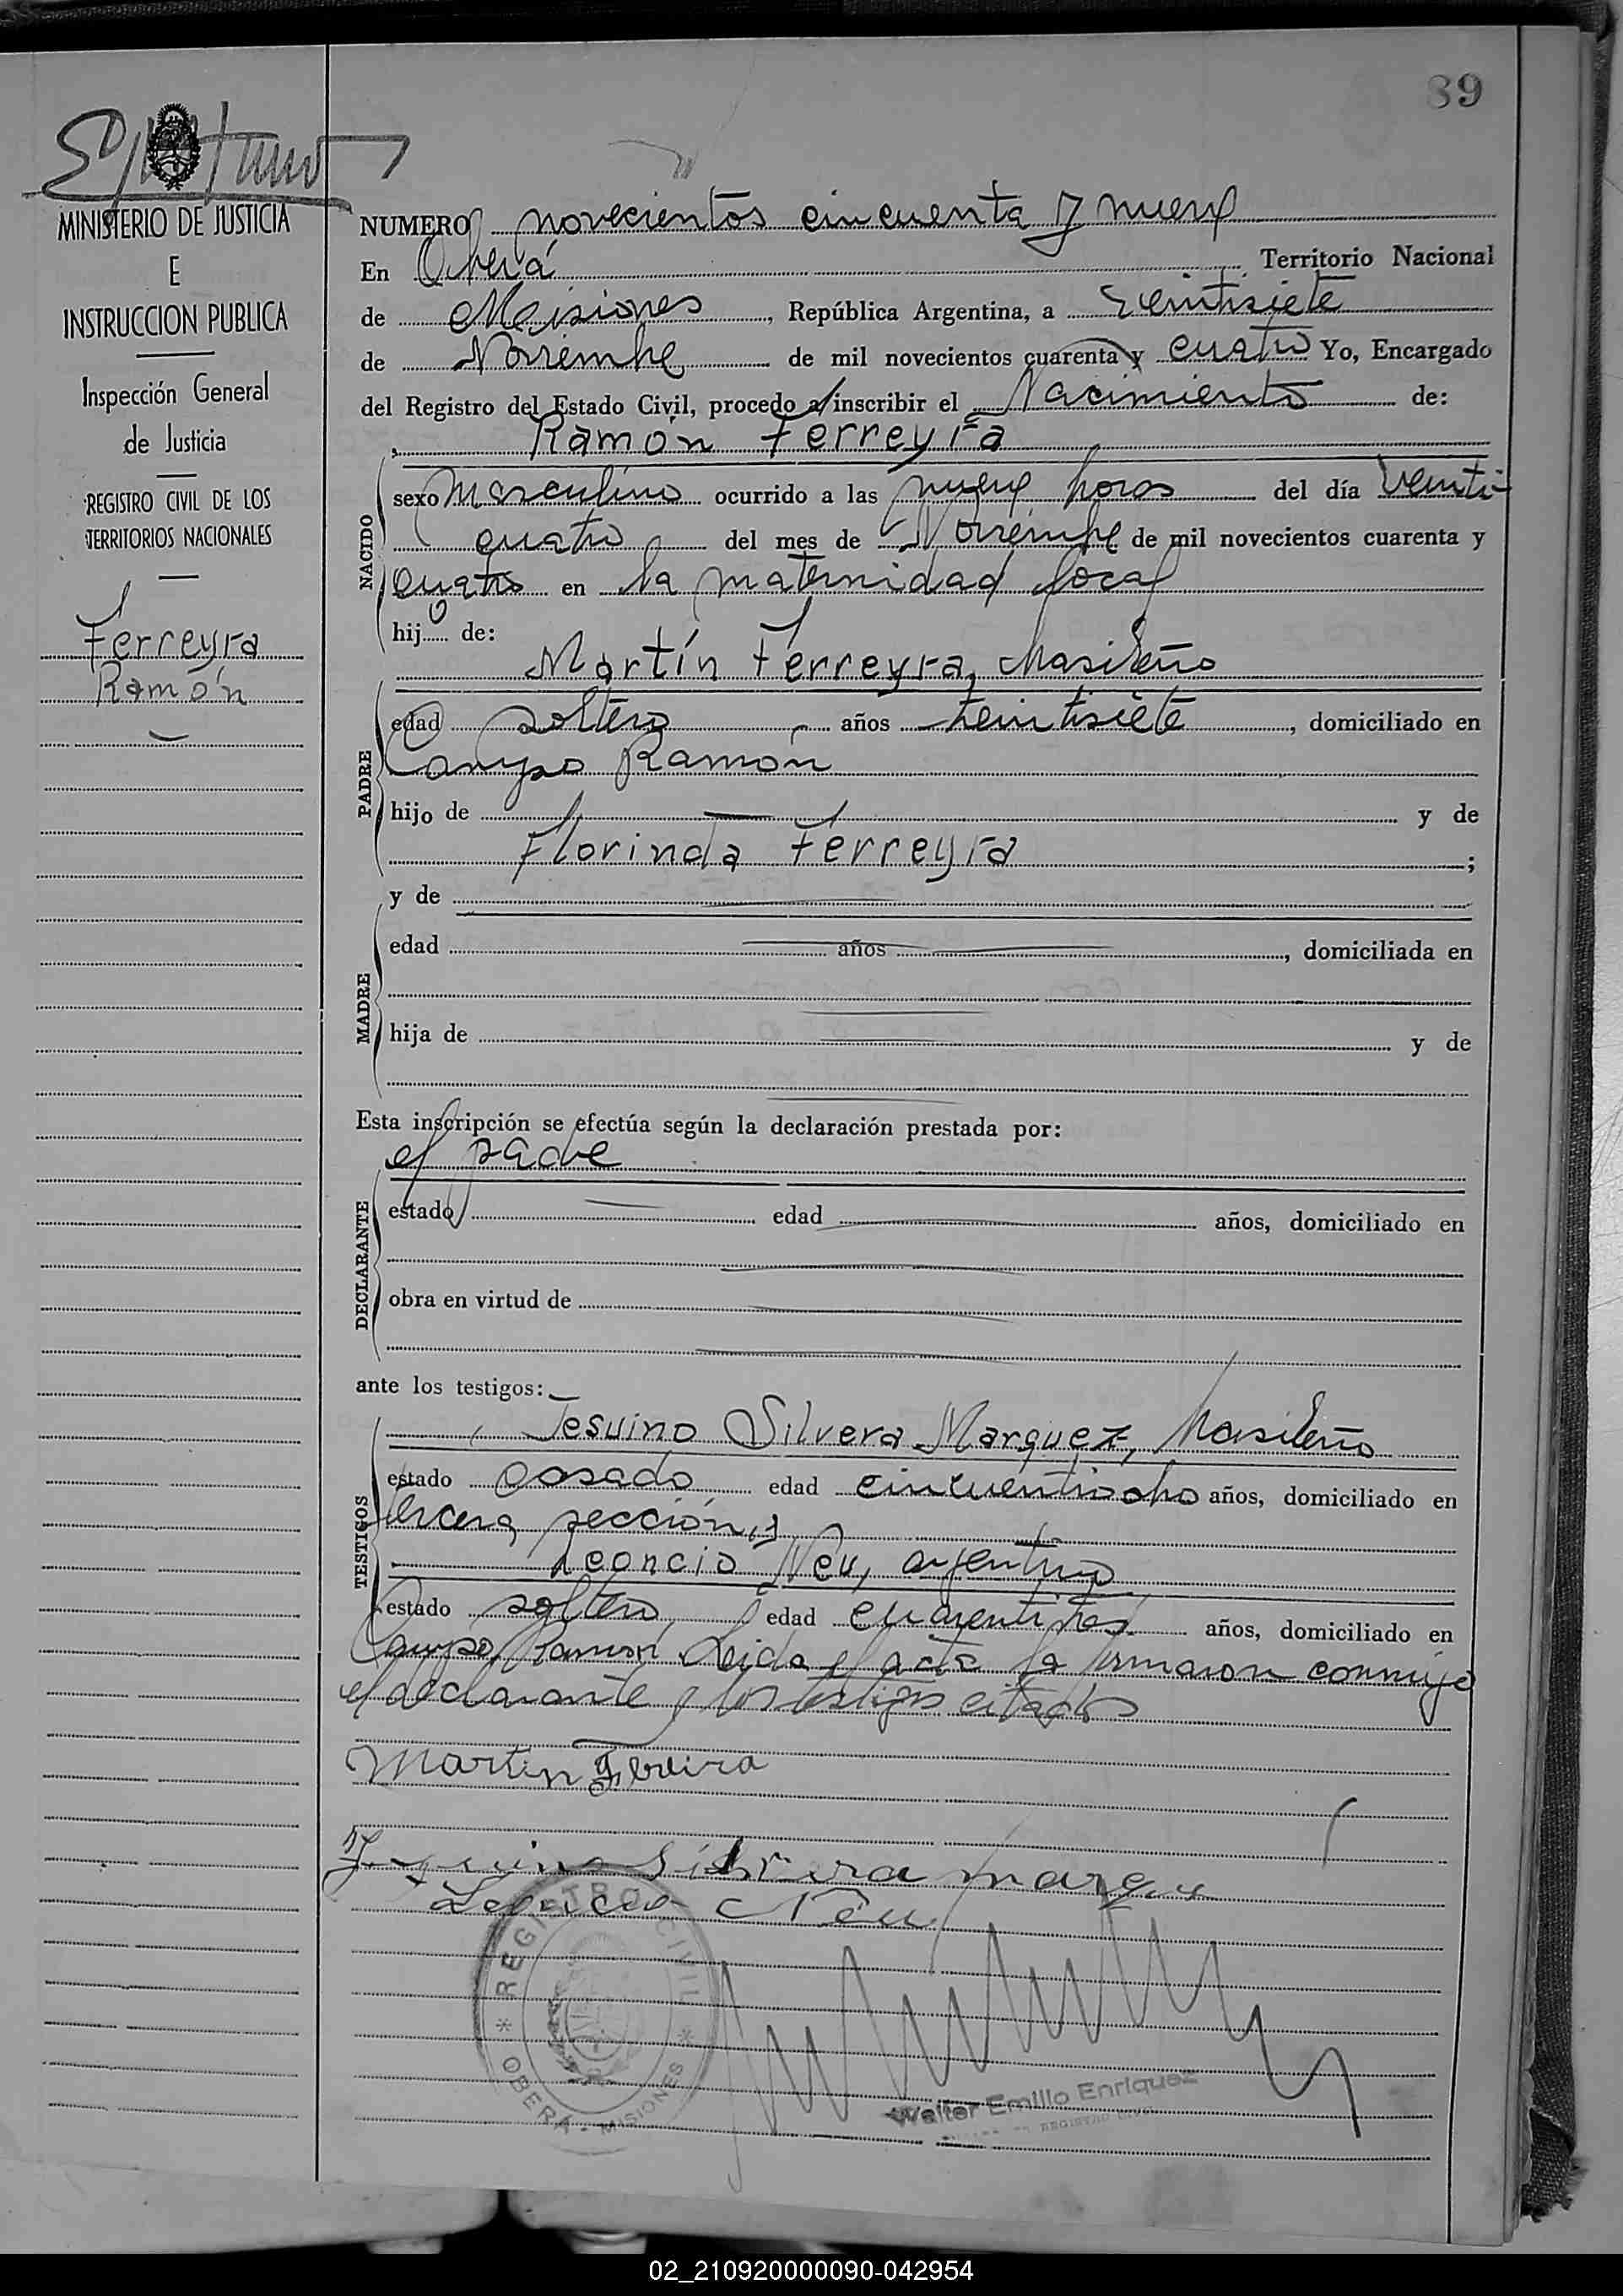 89
MINISTERIO DE JUSTICIA
E
INSTRUCCION PUBLICA
Inspección General
de Justicia
REGISTRO CIVIL DE LOS
TERRITORIOS NACIONALES
Ferreyra
Ramón
NUMERO novecientos cincuenta y nueve
En Oberá Territorio Nacional
de Misiones, República Argentina, a veintisiete
de Noviembre de mil novecientos cuarenta y cuatro Yo, Encargado
del Registro del Estado Civil, procedo a inscribir el Nacimiento de:
Ramón Ferreyra
NACIDO
sexo masculino ocurrido a las nueve horas del día veinti-
cuatro del mes de Noviembre de mil novecientos cuarenta y
cuatro en la maternidad local
hijo de:
Martín Ferreyra, brasileño
PADRE
edad soltero años veintisiete, domiciliado en
Campo Ramón
hijo de — y de
Florinda Ferreyra;
y de
MADRE
edad años, domiciliada en
hija de y de
Esta inscripción se efectúa según la declaración prestada por:
el padre
DECLARANTE
estado edad años, domiciliado en
obra en virtud de
ante los testigos:
TESTIGOS
Jesuino Silvera Marquez, brasileño
estado casado edad cincuentiocho años, domiciliado en
tercera sección, y
Leoncio Neu, argentino
estado soltero, edad cuarentitres años, domiciliado en
Campo Ramón. Leida el acta la firmaron conmigo
el declarante y los testigos citados
Martin Ferreira
Silvera Marque
Leoncio Neu
REGISTRO CIVIL
* OBERÁ - MISIONES *
Walter Emilio Enriquez
REGISTRO CIVIL
02_210920000090-042954